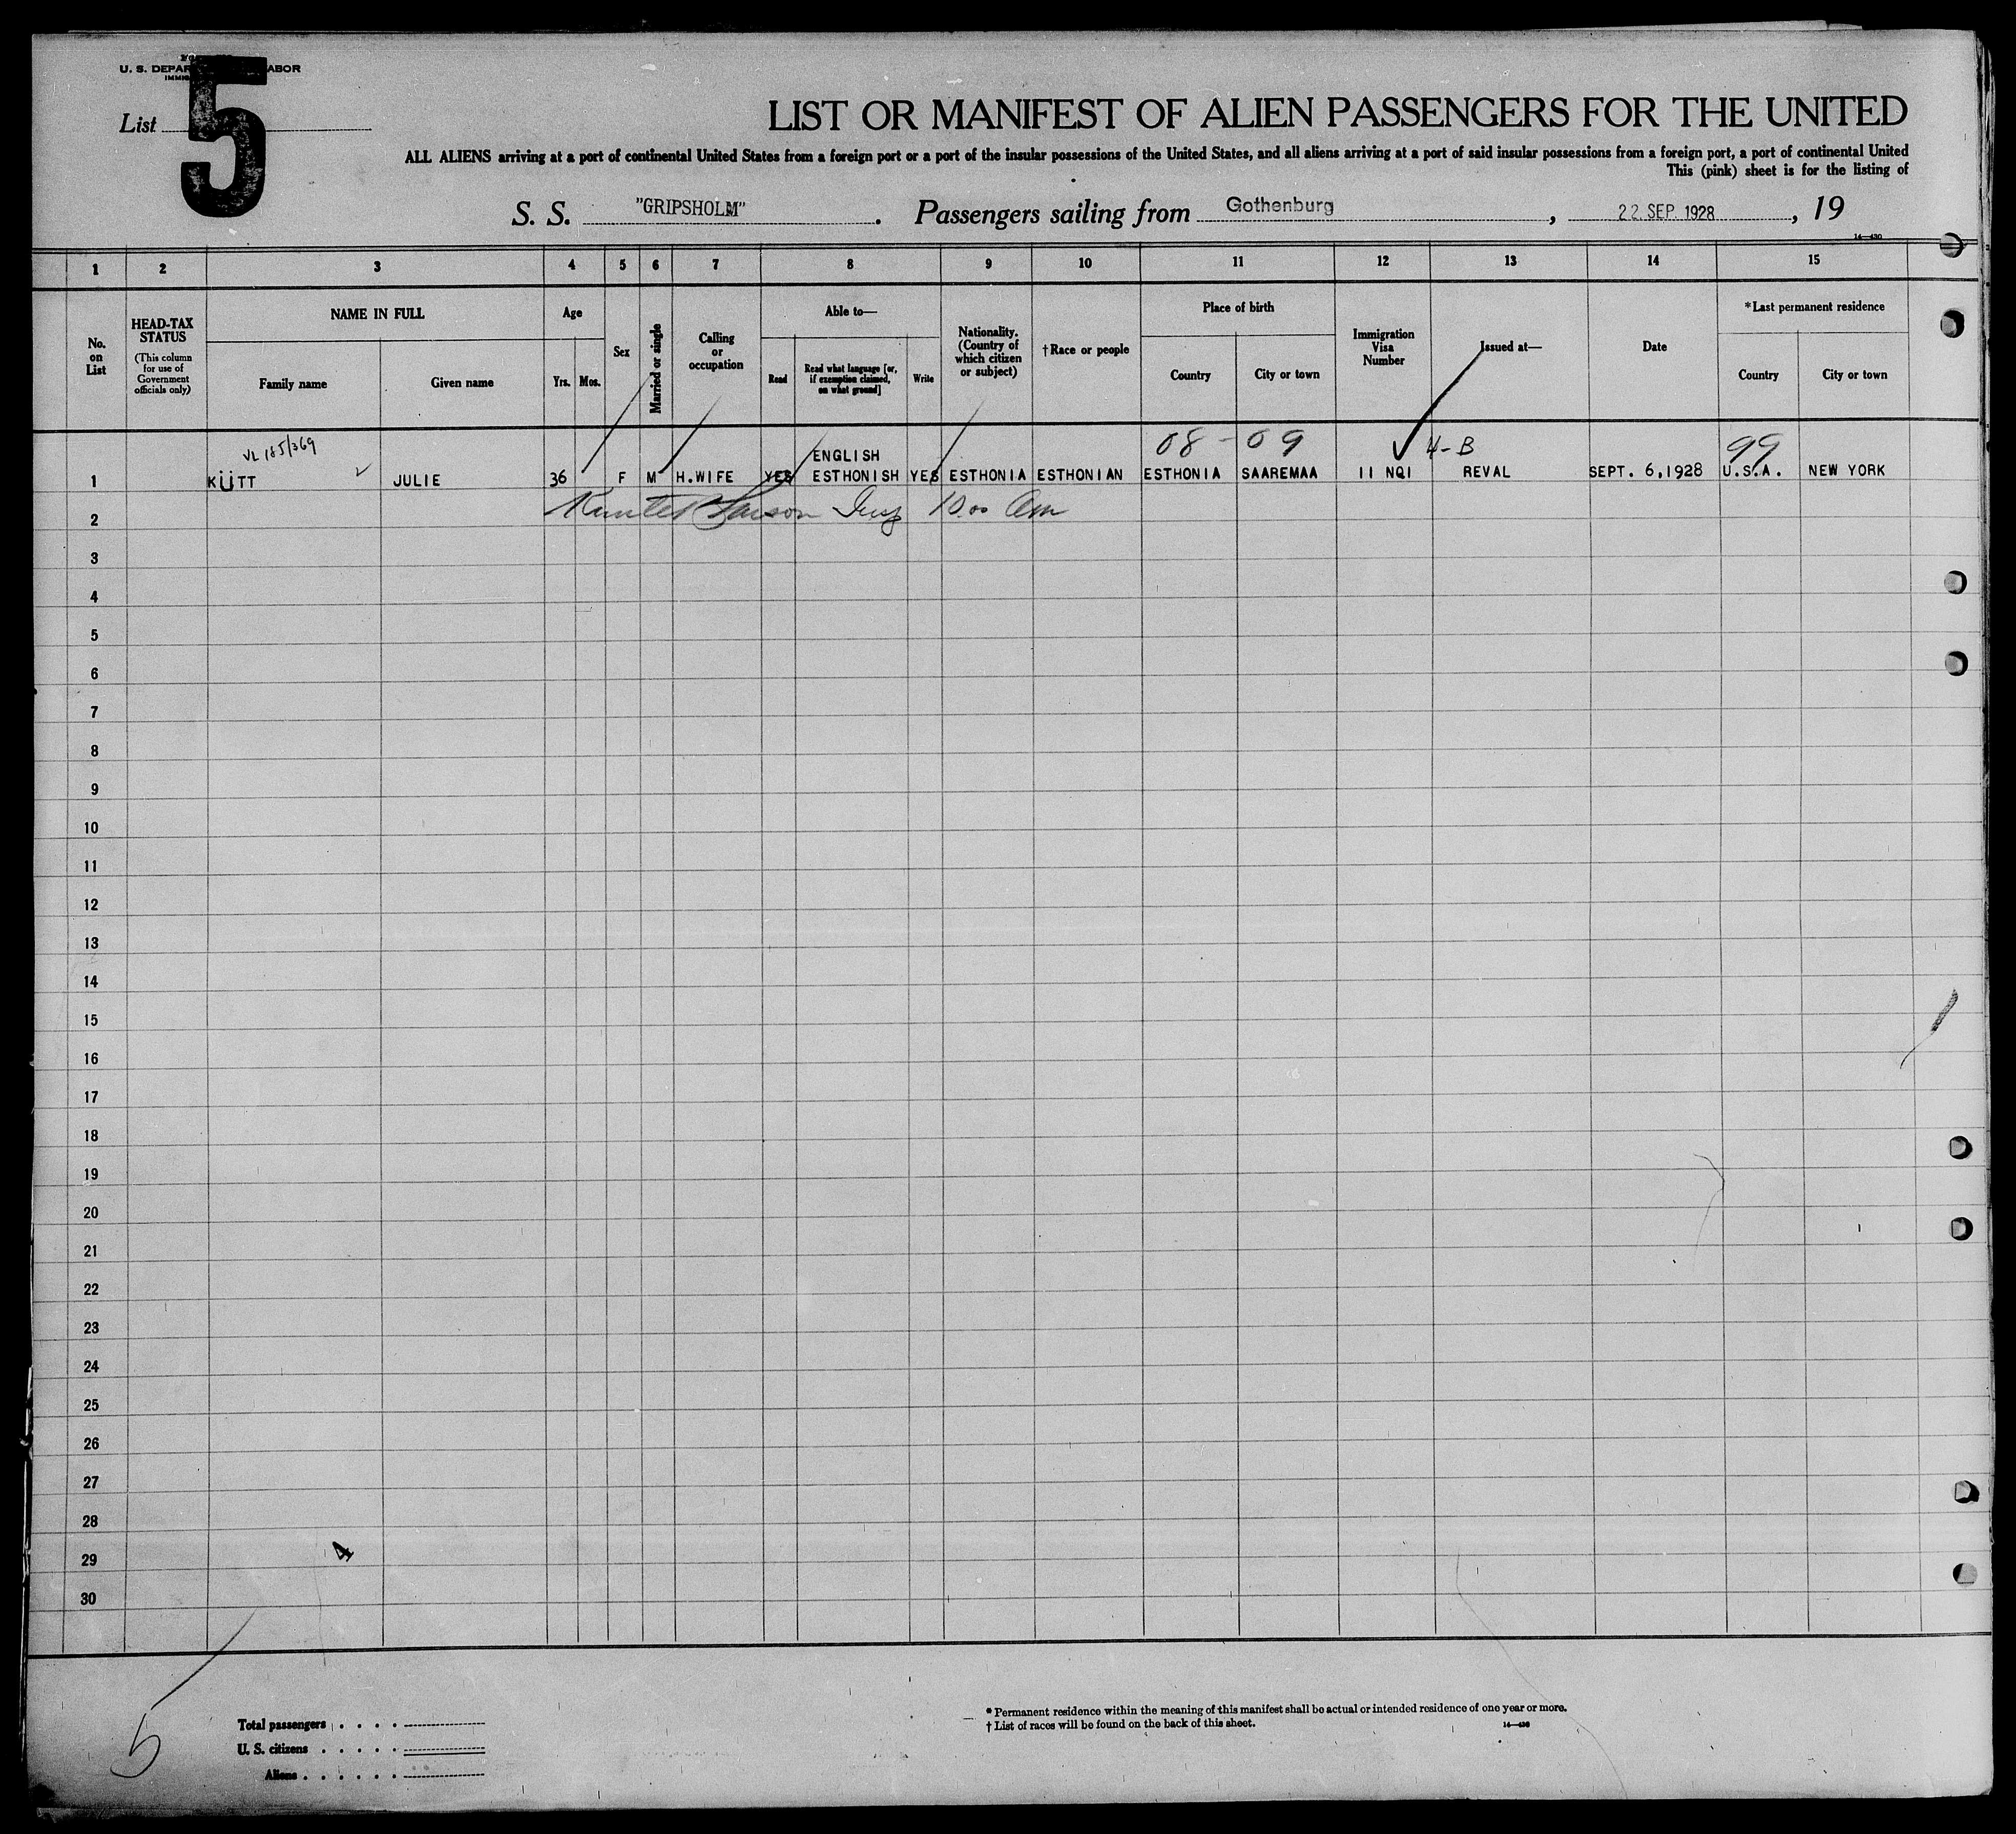 U. S. DEPAR ABOR
List 5
LIST OR MANIFEST OF ALIEN PASSENGERS FOR THE UNITED
ALL ALIENS arriving at a port of continental United States from a foreign port or a port of the insular possessions of the United States, and all aliens arriving at a port of said insular possessions from a foreign port, a port of continental United
This (pink) sheet is for the listing of
S. S. "GRIPSHOLM". Passengers sailing from Gothenburg, 22. SEP. 1928, 19
14—430
1 2 3 4 5 6 7 8 9 10 11 12 13 14 15
No. on List
HEAD-TAX STATUS
(This column for use of Government officials only)
NAME IN FULL
Family name
Given name
Age
Yrs. Mos.
Sex
Married or single
Calling or occupation
Able to—
Read
Read what language [or, if exemption claimed, on what ground]
Write
Nationality. (Country of which citizen or subject)
†Race or people
Place of birth
Country
City or town
Immigration Visa Number
Issued at—
Date
*Last permanent residence
Country
City or town
VL 185/369 ENGLISH 08 - 09 4-B 99
1 KÜTT JULIE 36 F M H.WIFE YES ESTHONISH YES ESTHONIA ESTHONIAN ESTHONIA SAAREMAA 11 NQI REVAL SEPT. 6,1928 U.S.A. NEW YORK
2 Insp 10.00 Am
3
4
5
6
7
8
9
10
11
12
13
14
15
16
17
18
19
20
21
22
23
24
25
26
27
28
29 4
30
5
Total passengers . . . .
U. S. citizens . . . . .
Aliens . . . . . .
* Permanent residence within the meaning of this manifest shall be actual or intended residence of one year or more.
† List of races will be found on the back of this sheet.
14—430